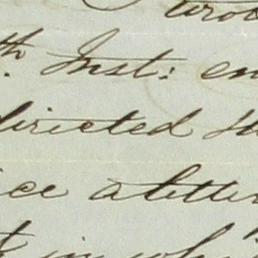 wro
th. Inst: en
directed
ice a letter
t in whi